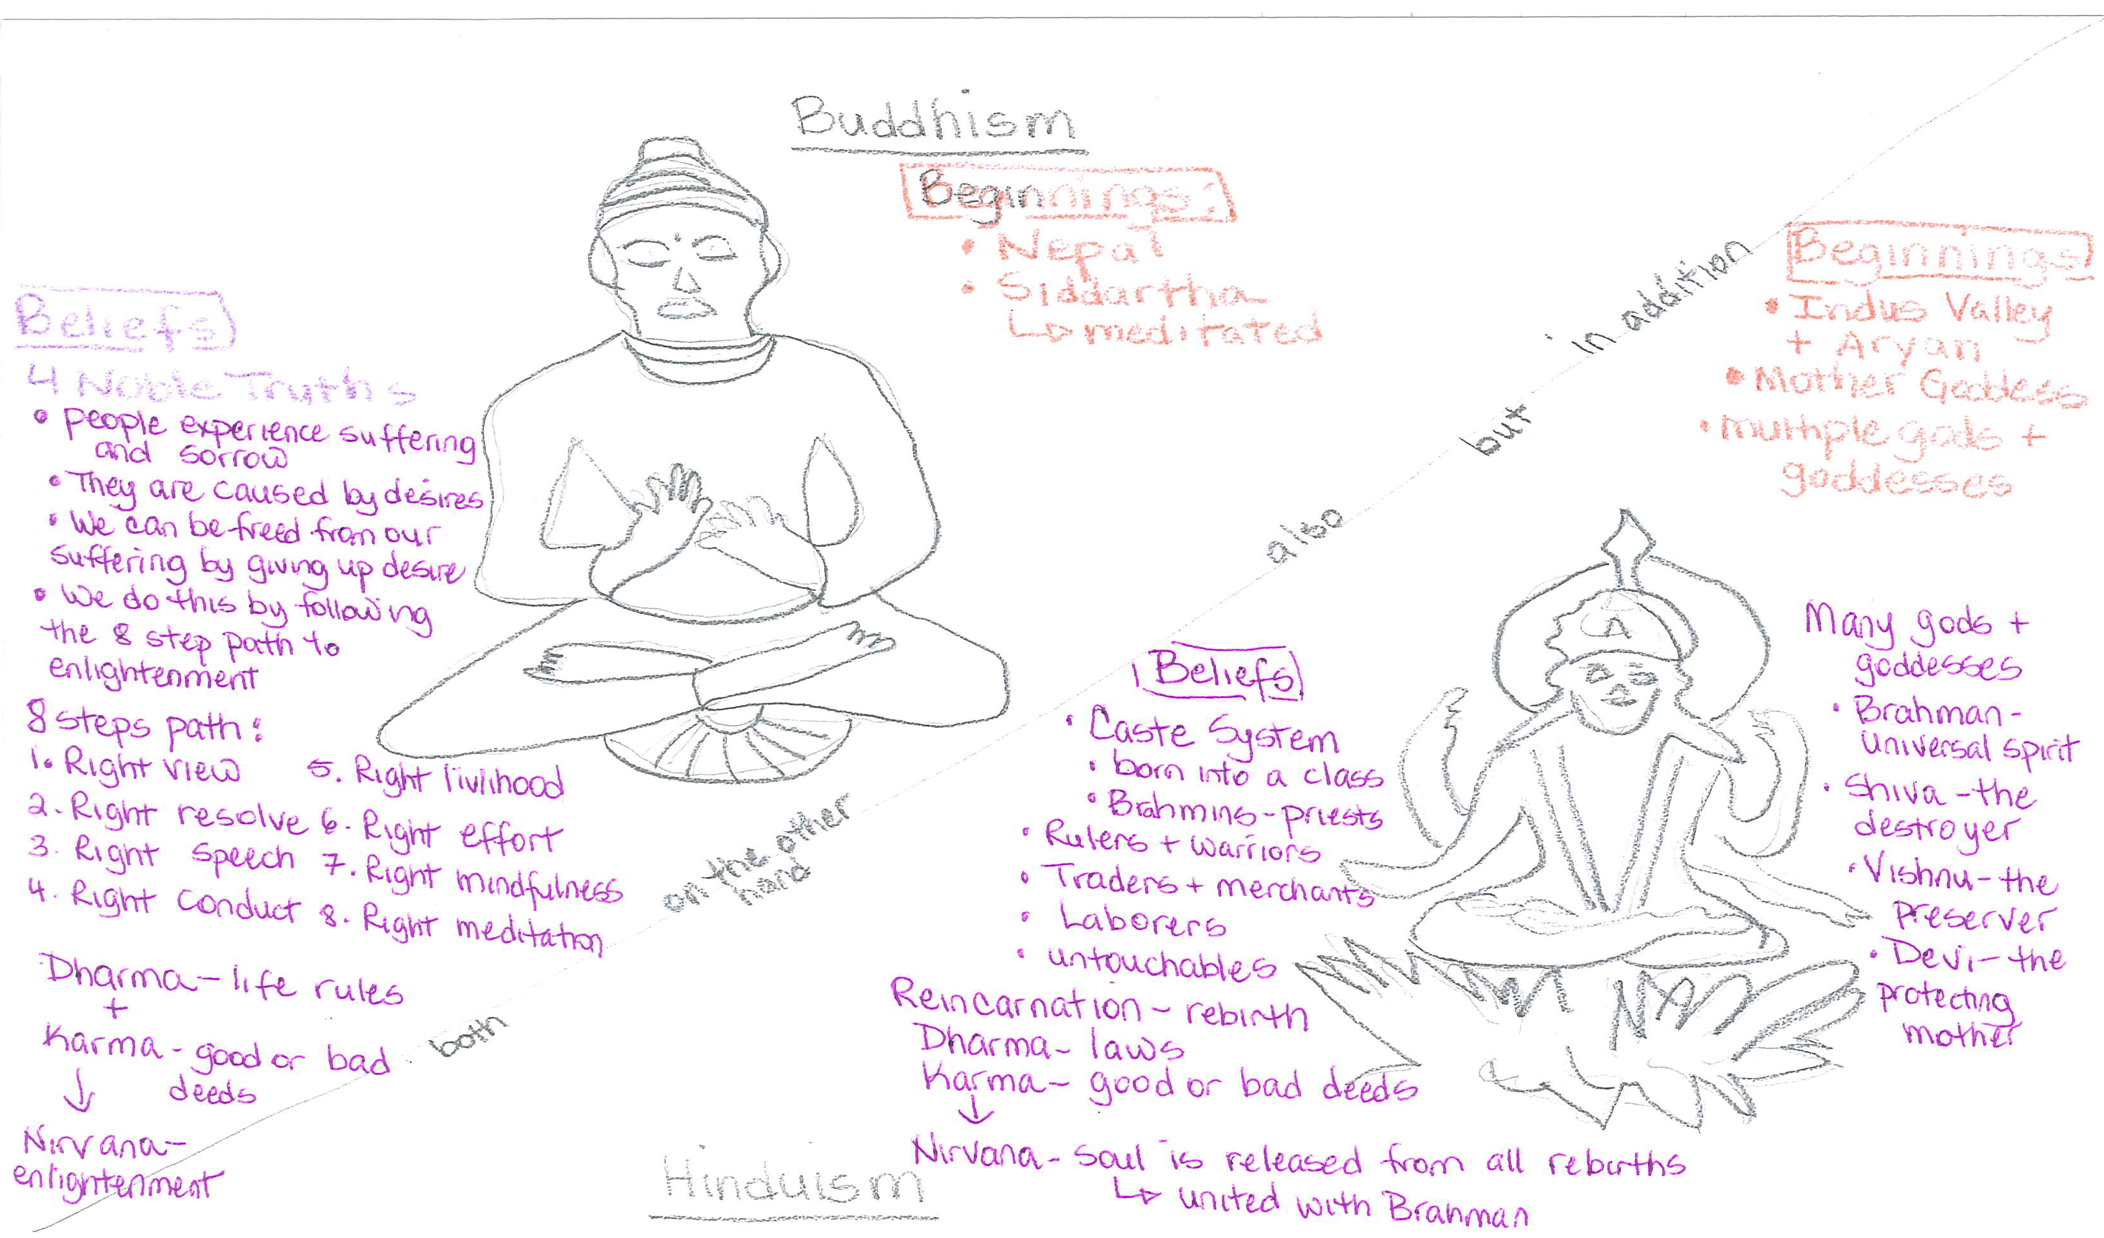 Buddhism
Beginnings:
• Nepal
• Siddartha
↳ meditated
Beliefs
4 Noble Truths
• people experience suffering
and sorrow
• They are caused by desires
• We can be freed from our
suffering by giving up desire
• We do this by following
the 8 step path to
enlightenment
8 steps path:
1. Right view
2. Right resolve
3. Right speech
4. Right conduct
5. Right livlihood
6. Right effort
7. Right mindfulness
8. Right meditation
Dharma - life rules
+
Karma - good or bad
deeds
↓
Nirvana -
enlightenment
both
on the other
hand
also
but
in addition
Beginnings
• Indus Valley
+ Aryan
• Mother Goddess
• multiple gods +
goddesses
Beliefs
• Caste System
• born into a class
• Brahmins - priests
• Rulers + warriors
• Traders + merchants
• Laborers
• untouchables
Reincarnation - rebirth
Dharma - laws
Karma - good or bad deeds
↓
Nirvana - soul is released from all rebirths
↳ united with Brahman
Many gods +
goddesses
• Brahman -
universal spirit
• Shiva - the
destroyer
• Vishnu - the
preserver
• Devi - the
protecting
mother
Hinduism